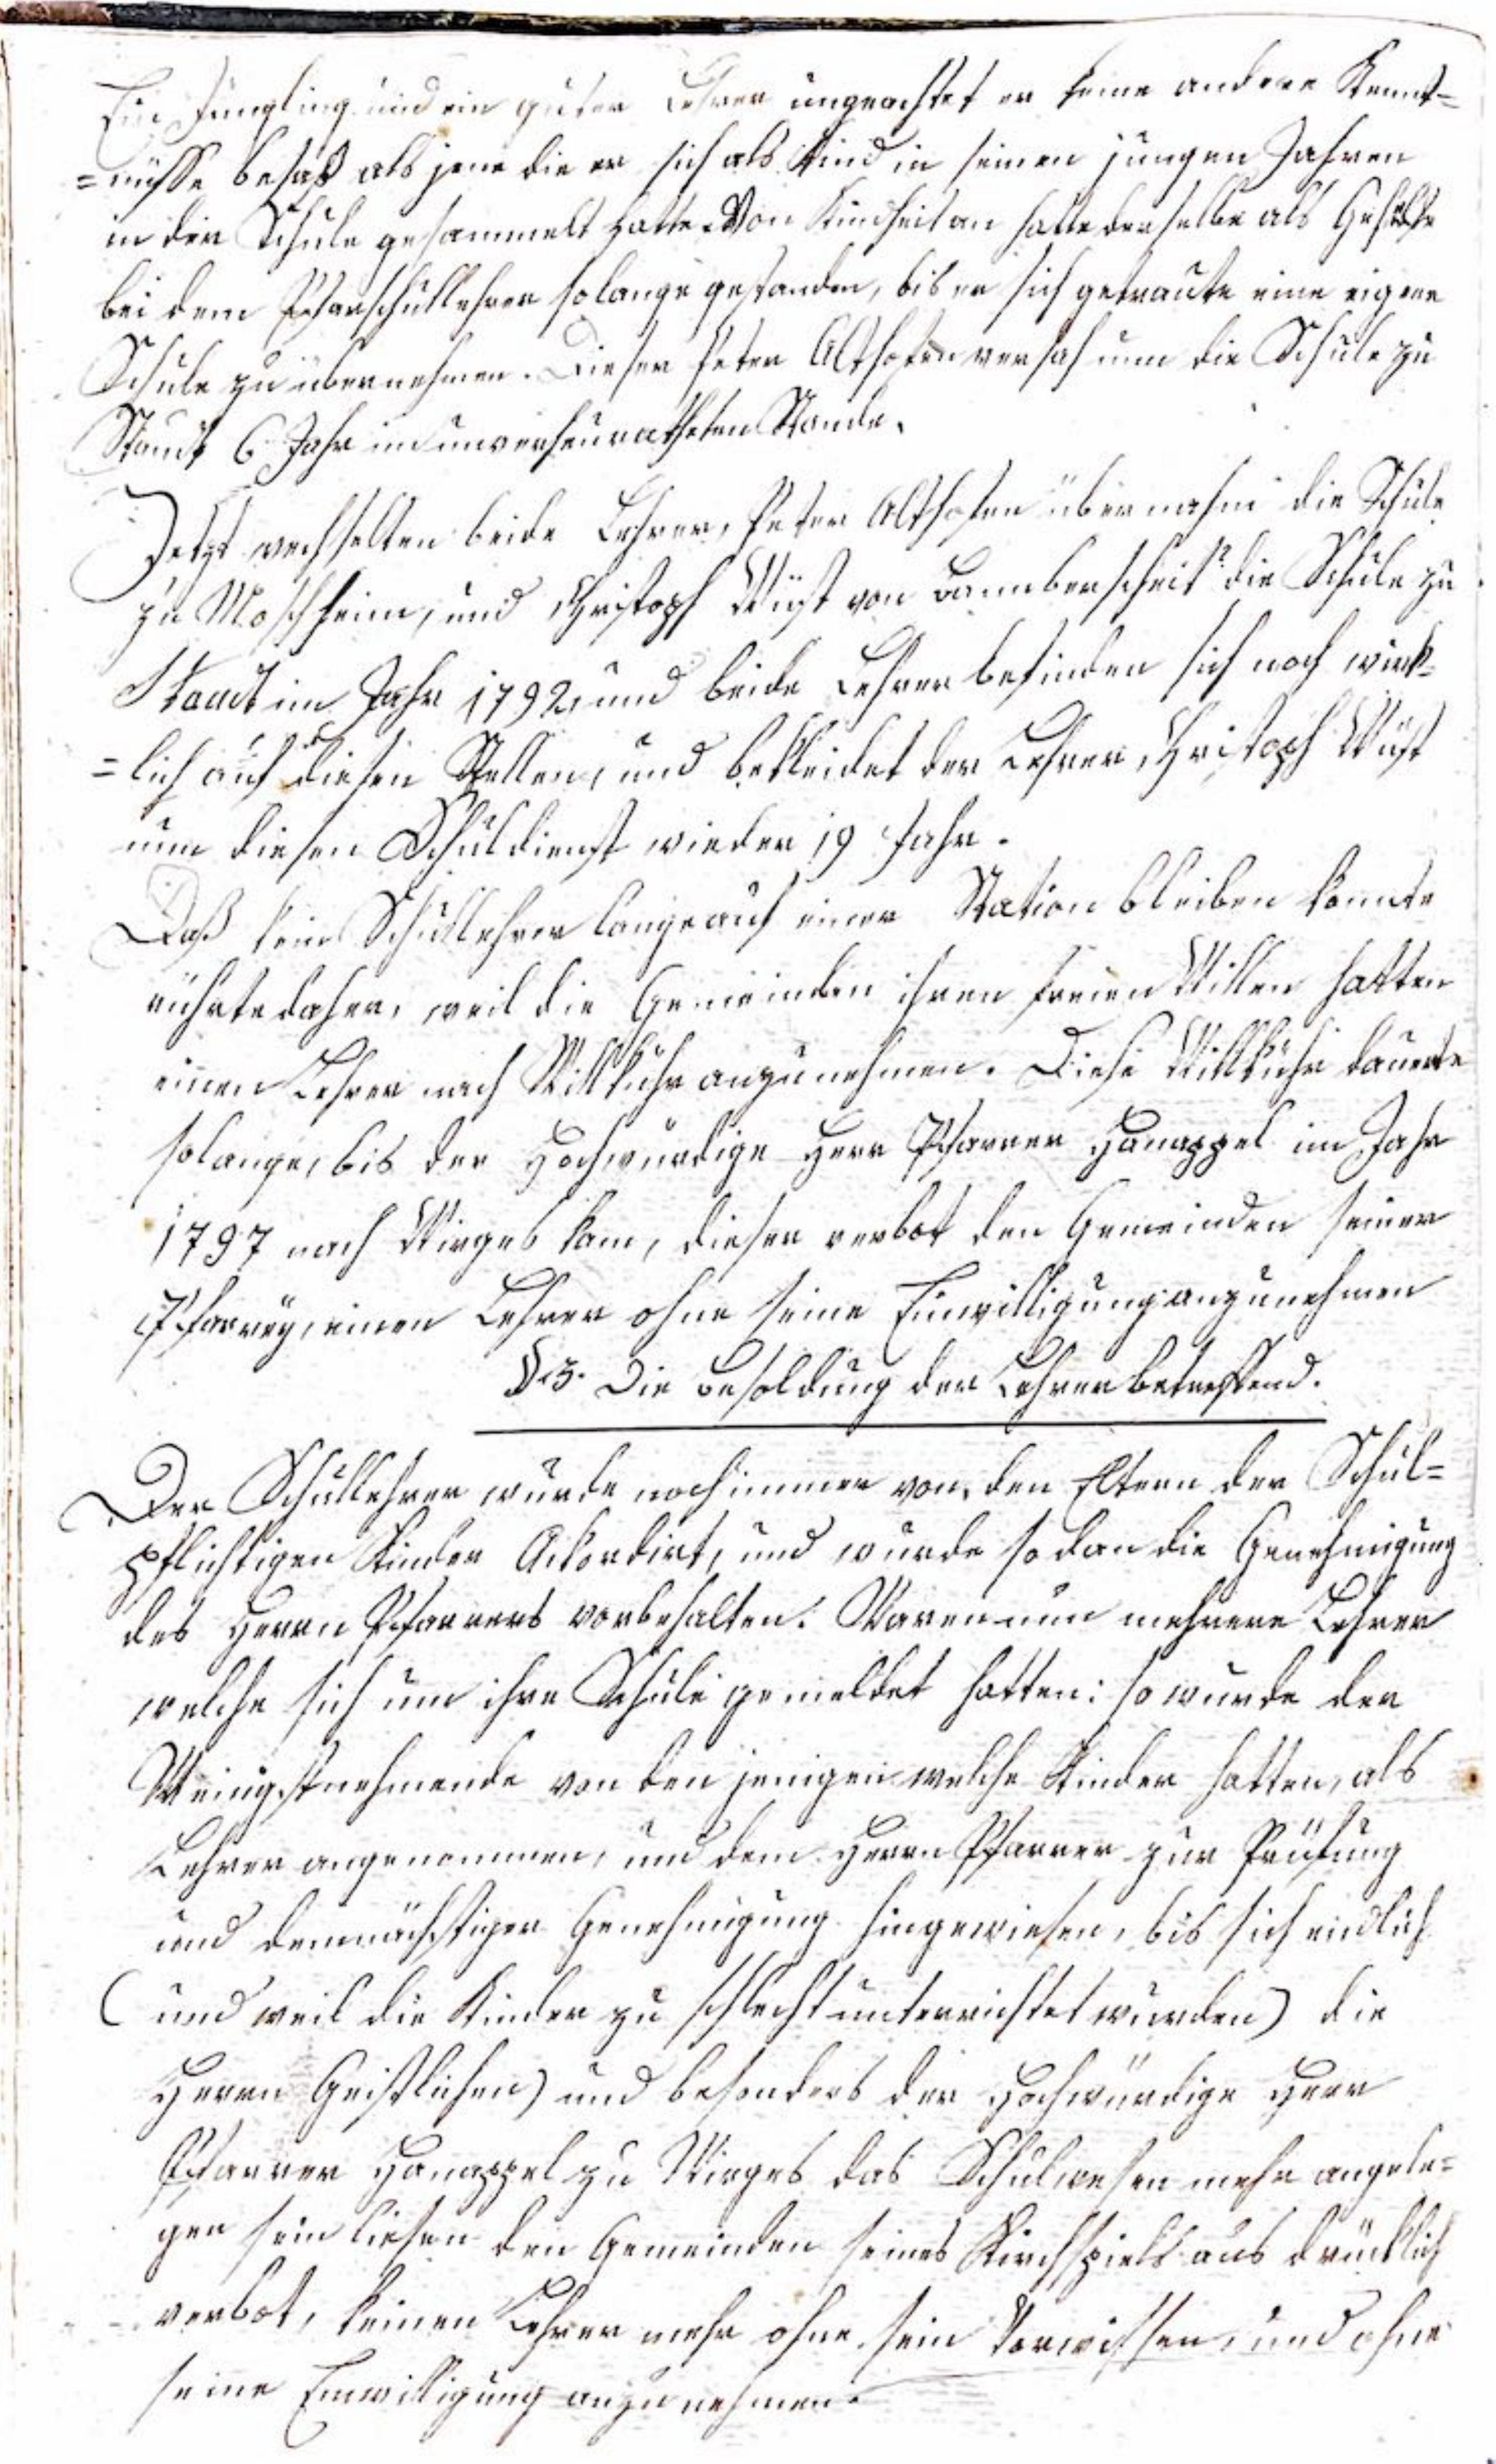 Ein Jüngling und ein guter Lehrer ungeachtet er keine andere Kennt=
=nüsse besaß als jene die er sich als Kind in seinen jungen Jahren
in der Schule gesammelt hatte. Von Kindheit an hatte derselbe als Gehülfe
bei dem Pfarschullehrer solange gestanden, bis er sich getraute eine eigene
Schule zu übernehmen. Dieser Peter Althofen versah nun die Schule zu
Staudt 6 Jahr im unverheuratheten Stande.
Jetzt wechselten beide Lehrer, Peter Althofen übernahm die Schule
zu Moschheim, und Christoph Wüst von Dannberscheit die Schule zu
Staudt im Jahr 1792, und beide Lehrer befinden sich noch wirk=
=lich auf diesen Stellen, und bekleidet der Lehrer Christoph Wüst
nun diesen Schuldienst wieder 19 Jahr.
Daß kein Schullehrer lange auf einer Station bleiben konnte
rührte daher, weil die Gemeinden ihren freien Willen hatten
einen Lehrer nach Willkühr anzunehmen. Diese Willkühr dauerte
solange, bis der Hochwürdige Herr Pfarrer Hanappel im Jahr
1797 nach Wirges kam, dieser verbot den Gemeinden seiner
Pfarrey, einen Lehrer ohne seine Einwilligung anzunehmen
§.3. Die Besoldung der Lehrer betreffend.
Der Schullehrer wurde noch immer von den Eltern der Schul=
pflichtigen Kinder Ackordirt, und wurde sodan die Genehmigung
des Herrn Pfarrers vorbehalten. Waren nun mehrere Lehrer
welche sich um ihre Schule gemeldet hatten: so wurde der
Wenigstnehmende von den jenigen welche Kinder hatten, als
Lehrer angenommen, und dem Herrn Pfarrer zur Prüfung
und demnächstiger Genehmigung hingewiesen, bis sich endlich
(und weil die Kinder zu schlecht unterrichtet wurden) die
Herrn Geistlichen) und besonders der Hochwürdige Herr
Pfarrer Hanappel zu Wirges das Schulwesen mehr angele=
gen sein liesen den Gemeinden seines Kirchspiels ausdrücklich
verbot, keinen Lehrer mehr ohne sein Vorwissen, und ohne
seine Einwilligung anzunehmen.